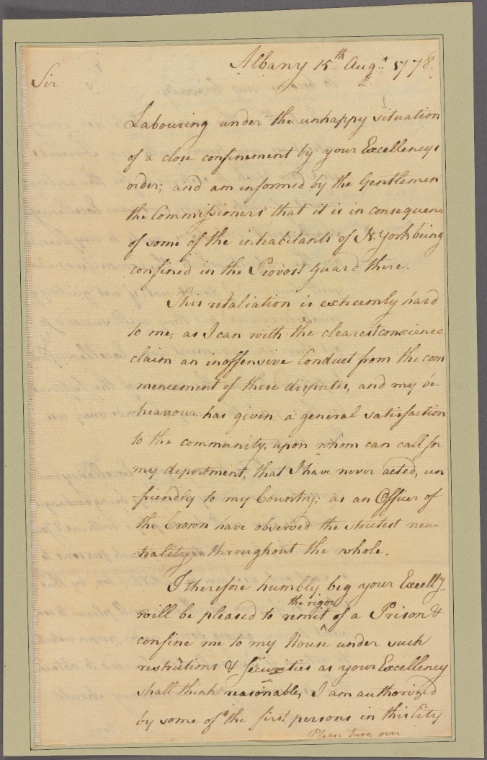 Albany 15th Augt 1778.
Sir
Labouring under the unhappy situation
of a close confinement by your Excellencys
order; and am informed by the Gentlemen
the Commissioners that it is in consequence
of some of the inhabitants of N. York being
confined in the Provost Guard there.
This retaliation is extreemly hard
to me, as I can with the clearest conscience
claim an inoffensive Conduct from the com
mencement of these disputes, and my be
heavour has given a general satisfaction
to the community, upon whom can call for
my deportment, that I have never acted, un
-friendly to my Country: as an Officer of
the Crown have observed the strictest neu
trality throughout the whole.
I therefore humbly beg your Excelly.
will be pleased to remit the rigour of a Prison &
confine me to my House under such
restrictions & securities as your Excellency
shall think reasonable, I am authorized
by some of the first persons in this City
Please turn over